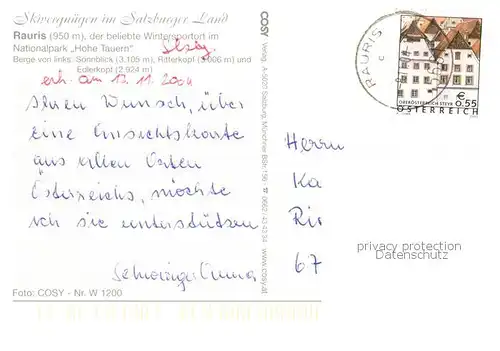 Skivergnügen im Salzburger Land
Rauris (950 m), der beliebte Wintersportort im
Nationalpark „Hohe Tauern"
Berge von links: Sonnblick (3.105 m), Ritterkopf (3.006 m) und
Edlerkopf (2.924 m)
Slzbg.
erh. am 13. 11. 2004
Ihren Wunsch, über
eine Ansichtskarte
aus allen Orten
Österreichs, möchte
ich sie unterstützen
Schwaiger Anna
Foto: COSY - Nr. W 1200
COSY Verlag, A-5021 Salzburg, Münchner BStr. 156 ☎ 0662 43 42 34 www.cosy.at
COSY
RAURIS
€ 0,55
OBERÖSTERREICH STEYR
ÖSTERREICH
Herrn
Ka
Rir
67
privacy protection
Datenschutz